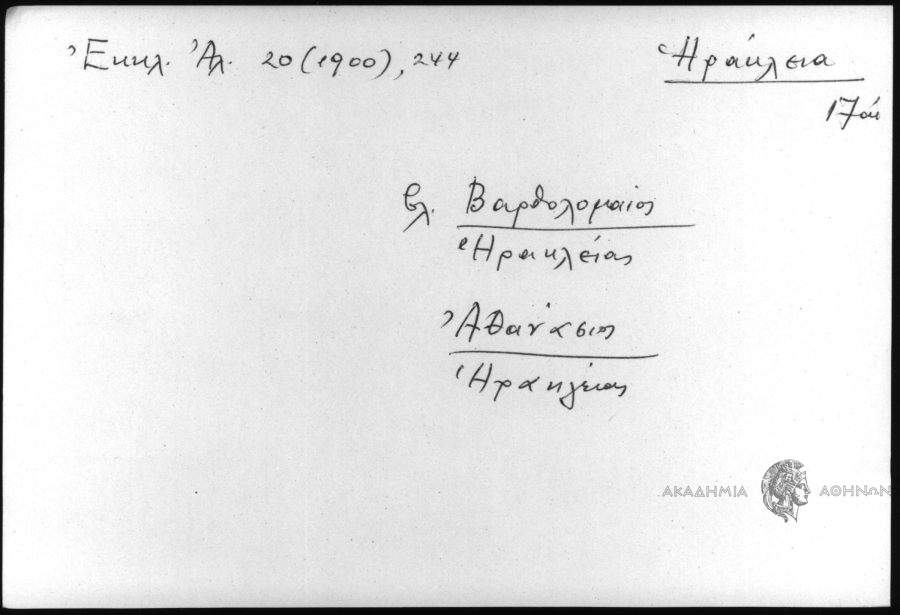 Ἐκκλ. Ἀλ. 20 (1900), 244
Ἡράκλεια
17
βλ. Βαρθολομαῖος
Ἡρακλείας
Ἀθανάσιος
Ἡρακλείας
ΑΚΑΔΗΜΙΑ ΑΘΗΝΩΝ